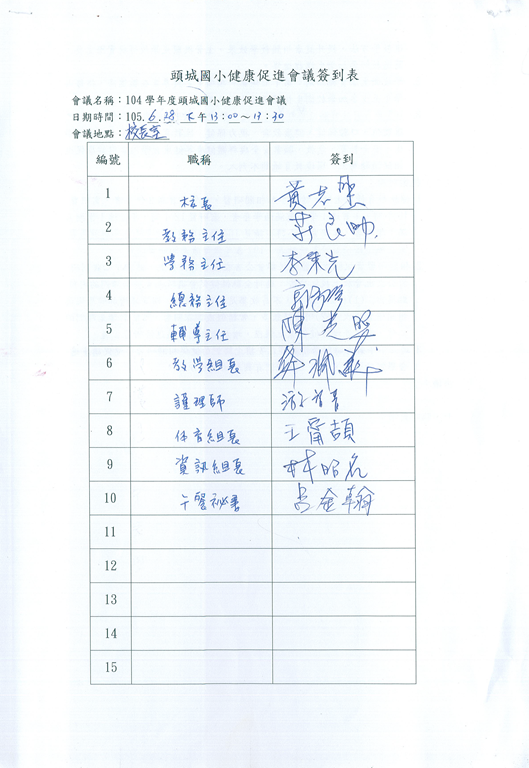 頭城國小健康促進會議簽到表
會議名稱：104 學年度頭城國小健康促進會議
日期時間：105.6.28 下午 13:00～13:30
會議地點：校長室
編號 職稱 簽到
1 校長 黃志堅
2 教務主任
3 學務主任 李榮光
4 總務主任
5 輔導主任 陳志賢
6 教學組長
7 護理師
8 體育組長 王甯頡
9 資訊組長 林昭宏
10 午餐祕書 呂金翰
11
12
13
14
15